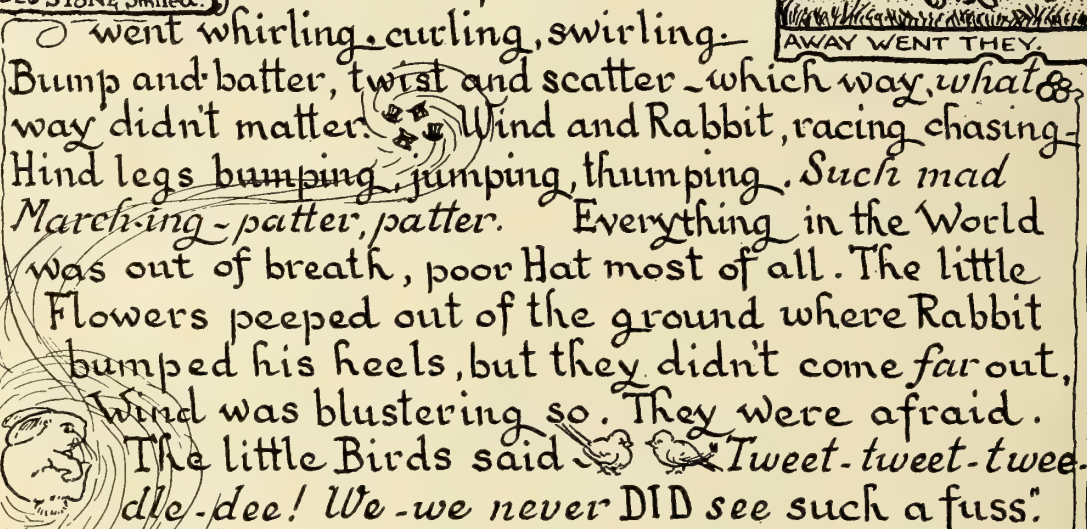 OLD STONE smiled.
AWAY WENT THEY.
went whirling, curling, swirling.
Bump and batter, twist and scatter - which way, what
way didn't matter. Wind and Rabbit, racing chasing -
Hind legs bumping, jumping, thumping. Such mad
March-ing - patter, patter. Everything in the World
was out of breath, poor Hat most of all. The little
Flowers peeped out of the ground where Rabbit
bumped his heels, but they didn't come far out,
Wind was blustering so. They were afraid.
The little Birds said - "Tweet-tweet-twee-
dle-dee! We-we never DID see such a fuss."